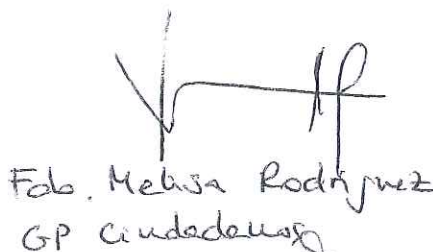 Fdo. Melisa Rodríguez
GP Ciudadanos